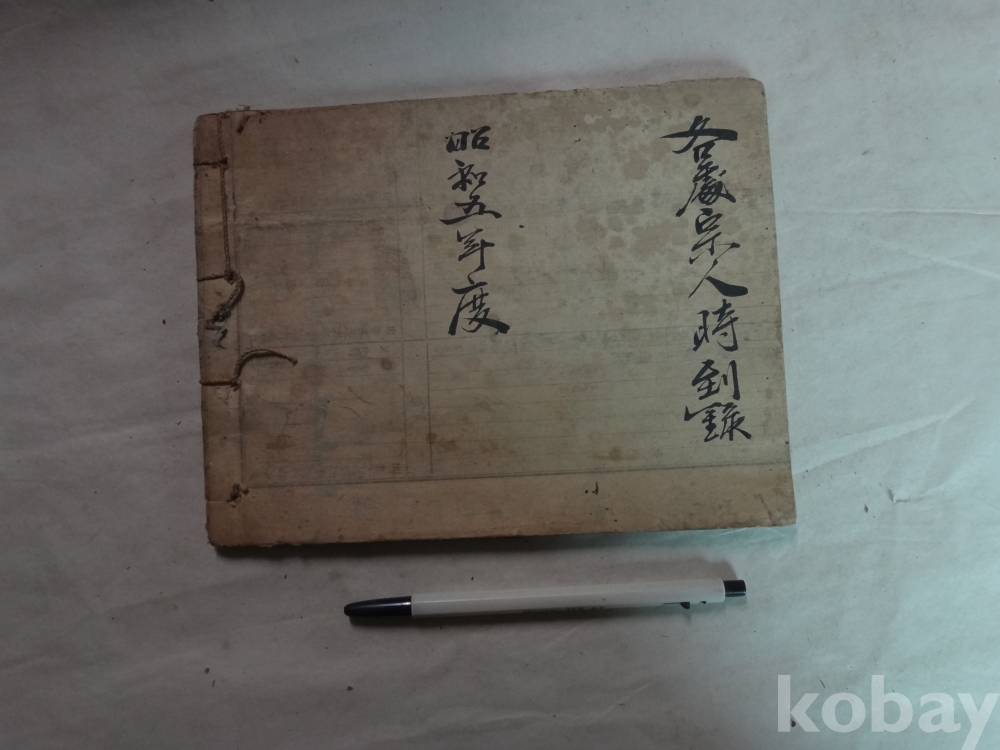 各處宗人時到錄
昭和五年度
kobay